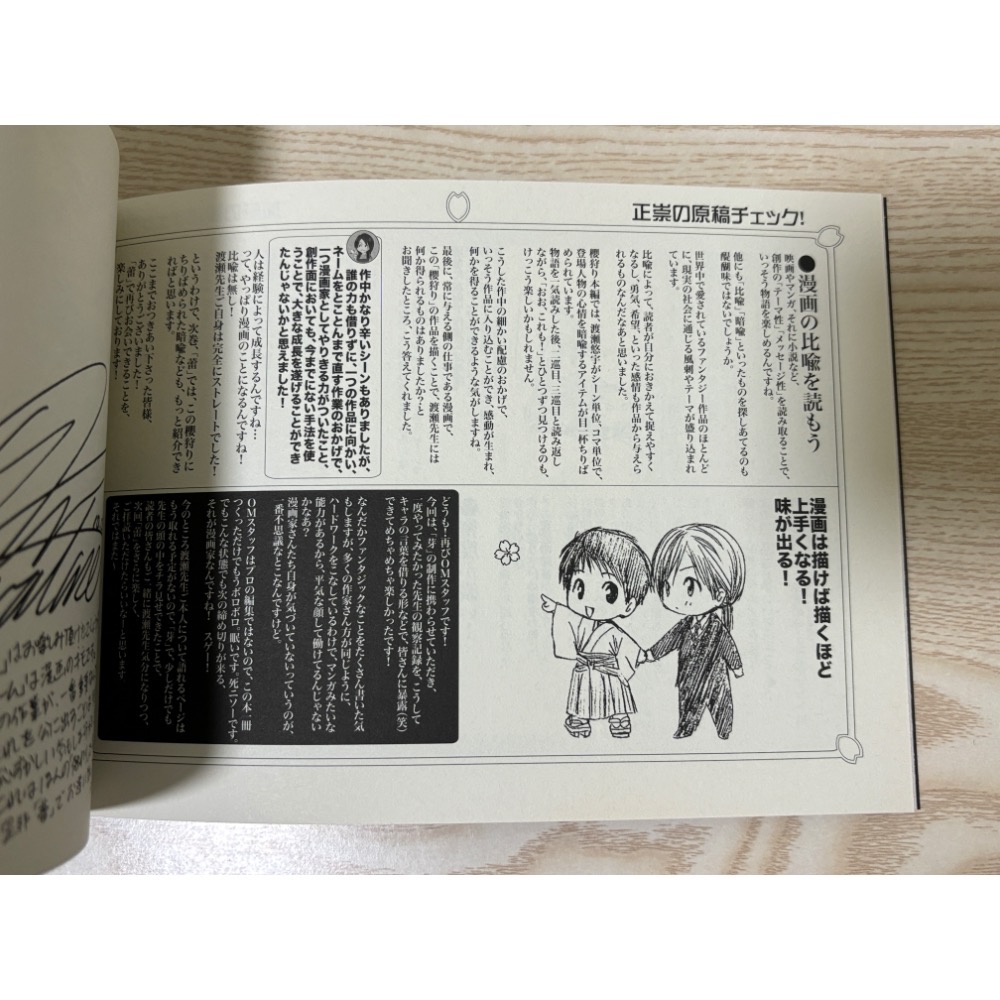 正崇の原稿チェック!
●漫画の比喩を読もう
映画やマンガ、それに小説など、
創作の『テーマ性』『メッセージ性』を読み取ることで、
いっそう物語を楽しめるんですね。
他にも『比喩』『暗喩』といったものを探しあてるのも
醍醐味ではないでしょうか。
世界中で愛されているファンタジー作品のほとんど
に、現実の社会に通じる風刺やテーマが盛り込まれ
ています。
比喩によって、読者が自分におきかえて捉えやすく
なるし、勇気、希望、といった感情も作品から与えら
れるものなんだなあと思いました。
櫻狩り本編では、渡瀬悠宇がシーン単位、コマ単位で、
登場人物の心情を暗喩するアイテムが目一杯ちりば
められています。
物語を一気読みした後、二巡目、三巡目と読み返し
ながら、「おお、これも!」とひとつずつ見つけるのも、
けっこう楽しいかもしれません。
こうした作中の細かい配慮のおかげで、
いっそう作品に入り込むことができ、感動が生まれ、
何かを得ることができるような気がしますね。
最後に、常に与える側の仕事である漫画で、
この『櫻狩り』の作品を描くことで、渡瀬先生には
何か得られるものはありましたか?と
お聞きしたところ、こう答えてくれました。
作中かなり辛いシーンもありましたが、
誰の力も借りずに、一つの作品に向かい、
ネームをとことんまで直す作業のおかげで、
一つ漫画家としてやりきる力がついたこと、
創作面においても、今までにない手法を使
うことで、大きな成長を遂げることができ
たんじゃないかと思えました!
人は経験によって成長するんですね…
って、やっぱり漫画のことになるんですね!
比喩は無し!
渡瀬先生ご自身は完全にストレートでした!
というわけで、次巻、「蕾」では、この櫻狩りに
ちりばめられた暗喩なども、もっと紹介でき
ればと思います。
ここまでおつきあい下さった皆様、
ありがとうございました!
「蕾」で再びお会いできることを、
楽しみにしております!
漫画は描けば描くほど
上手くなる!
味が出る!
どうも!再びOMスタッフです!
今回は、「芽」の制作に携わらせていただき、
一度やってみたかった先生の観察記録を、こうして
キャラの言葉を借りる形などで、皆さんに暴露(笑)
できてめちゃめちゃ楽しかったです!
なんだかファンタジックなことをたくさん書いた気
もしますが、多くの作家さん方が同じように、
ハードワークをこなしているわけで、マンガみたいな
能力があるから、平気な顔して働けてるんじゃない
かなあ?
漫画家さんたち自身が気づいていないっていうのが、
一番不思議などこなんですけど。
OMスタッフはプロの編集ではないので、この本一冊
つくっただけでもうボロボロ、眠いです。死ニソーです。
でもこんな状態でも次の締め切りが来る、
それが漫画家なんですね! スゲー!!
今のところ渡瀬先生ご本人について語れるページは
もう取れる予定がないので、「芽」で、少しだけでも
先生の頭の中をチラ見せできて、